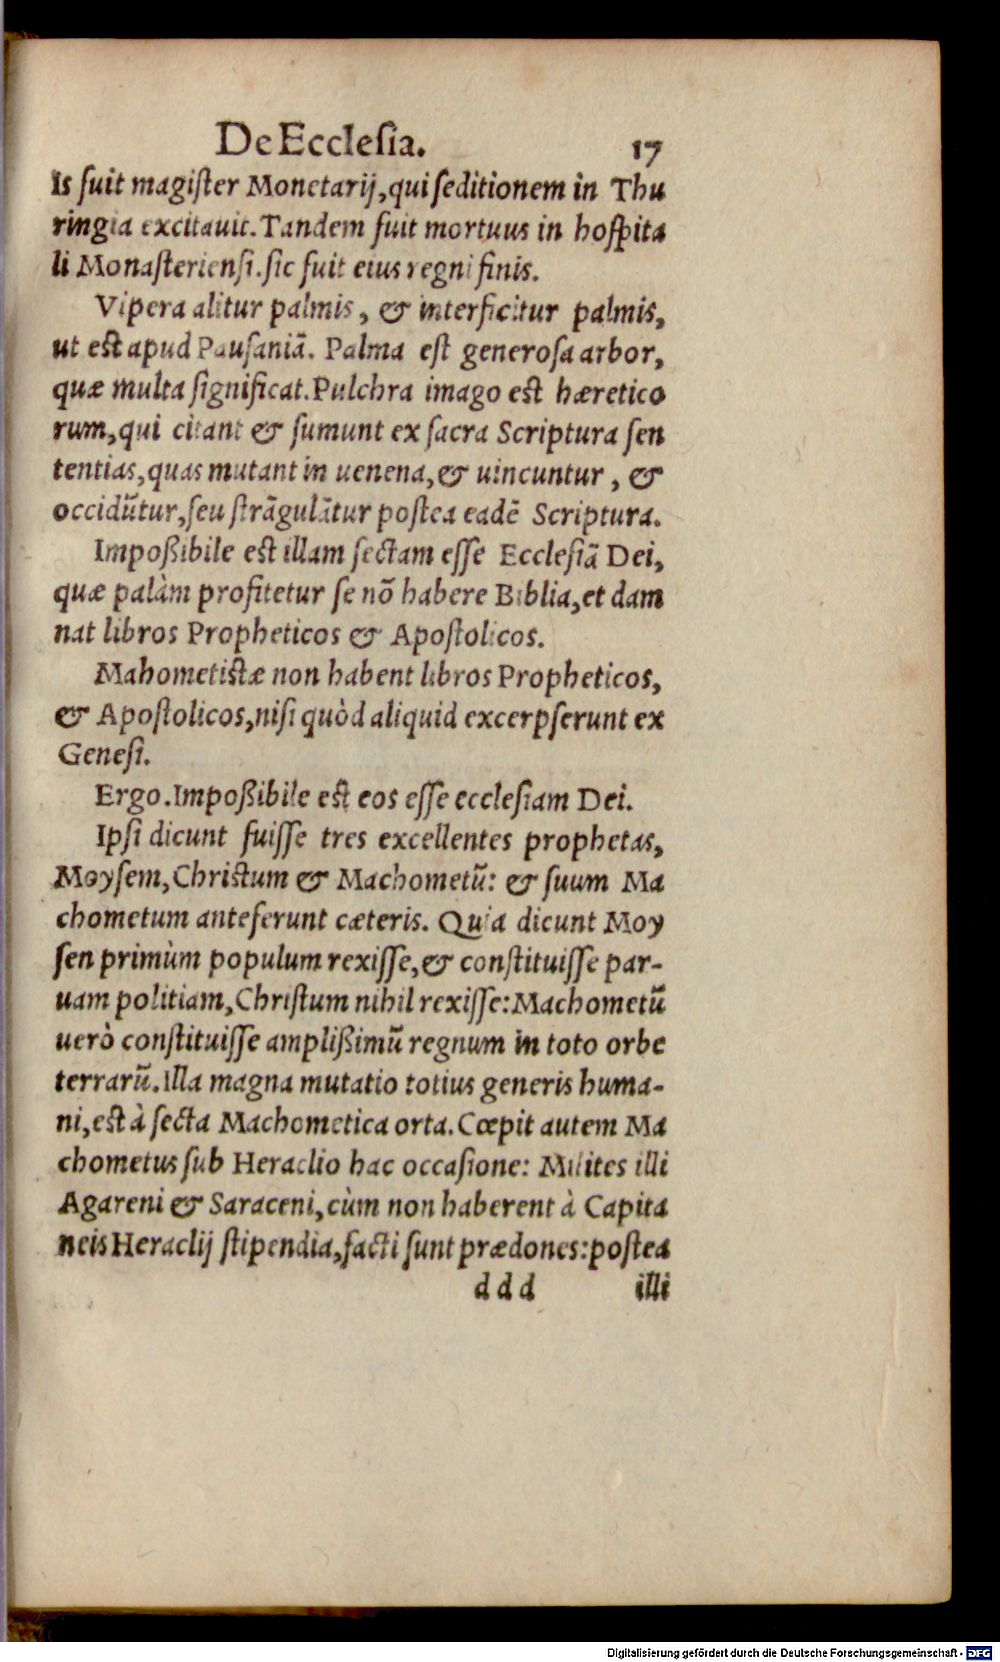 De Ecclesia. 17
Is fuit magiſter Monetarij, qui ſeditionem in Thu
ringia excitauit. Tandem fuit mortuus in hoſpita
li Monaſterienſi. ſic fuit eius regni finis.
Vipera alitur palmis, & interficitur palmis,
ut eſt apud Pauſaniã. Palma eſt generoſa arbor,
quæ multa ſignificat. Pulchra imago eſt hæretico
rum, qui citant & ſumunt ex ſacra Scriptura ſen
tentias, quas mutant in uenena, & uincuntur, &
occidũtur, ſeu ſtrãgulãtur poſtea eadẽ Scriptura.
Impoßibile eſt illam ſectam eſſe Eccleſiã Dei,
quæ palàm profitetur ſe nõ habere Biblia, et dam
nat libros Propheticos & Apoſtolicos.
Mahometiſtæ non habent libros Propheticos,
& Apoſtolicos, niſi quòd aliquid excerpſerunt ex
Geneſi.
Ergo. Impoßibile eſt eos eſſe eccleſiam Dei.
Ipſi dicunt fuiſſe tres excellentes prophetas,
Moyſem, Chriſtum & Machometũ: & ſuum Ma
chometum anteferunt cæteris. Quia dicunt Moy
ſen primùm populum rexiſſe, & conſtituiſſe par-
uam politiam, Chriſtum nihil rexiſſe: Machometũ
uerò conſtituiſſe amplißimũ regnum in toto orbe
terrarũ. Illa magna mutatio totius generis huma-
ni, eſt à ſecta Machometica orta. Cœpit autem Ma
chometus ſub Heraclio hac occaſione: Milites illi
Agareni & Saraceni, cùm non haberent à Capita
neis Heraclij ſtipendia, facti ſunt prædones: poſtea
d d d illi
Digitalisierung gefördert durch die Deutsche Forschungsgemeinschaft - DFG